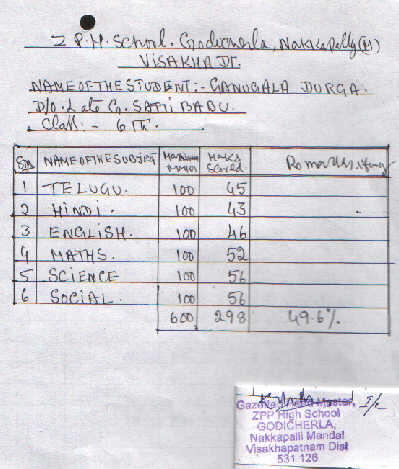 Z.P.H. School. Godicherla, Nakkapally(M)
VISAKHA DT.
NAME OF THE STUDENT:- GANUGALA DURGA.
D/O. Late G. SATTIBABU.
Class:- 6 Th.
S.no NAME OF THE SUBJECT Maximum Marks Marks Scored Remarks if any
1 TELUGU. 100 45
2 HINDI. 100 43
3 ENGLISH. 100 46
4 MATHS. 100 52
5 SCIENCE 100 56
6 SOCIAL. 100 56
600 298 49.6%
Gazetted Head Master, I/c
ZPP High School
GODICHERLA,
Nakkapalli Mandal
Visakhapatnam Dist
531 126